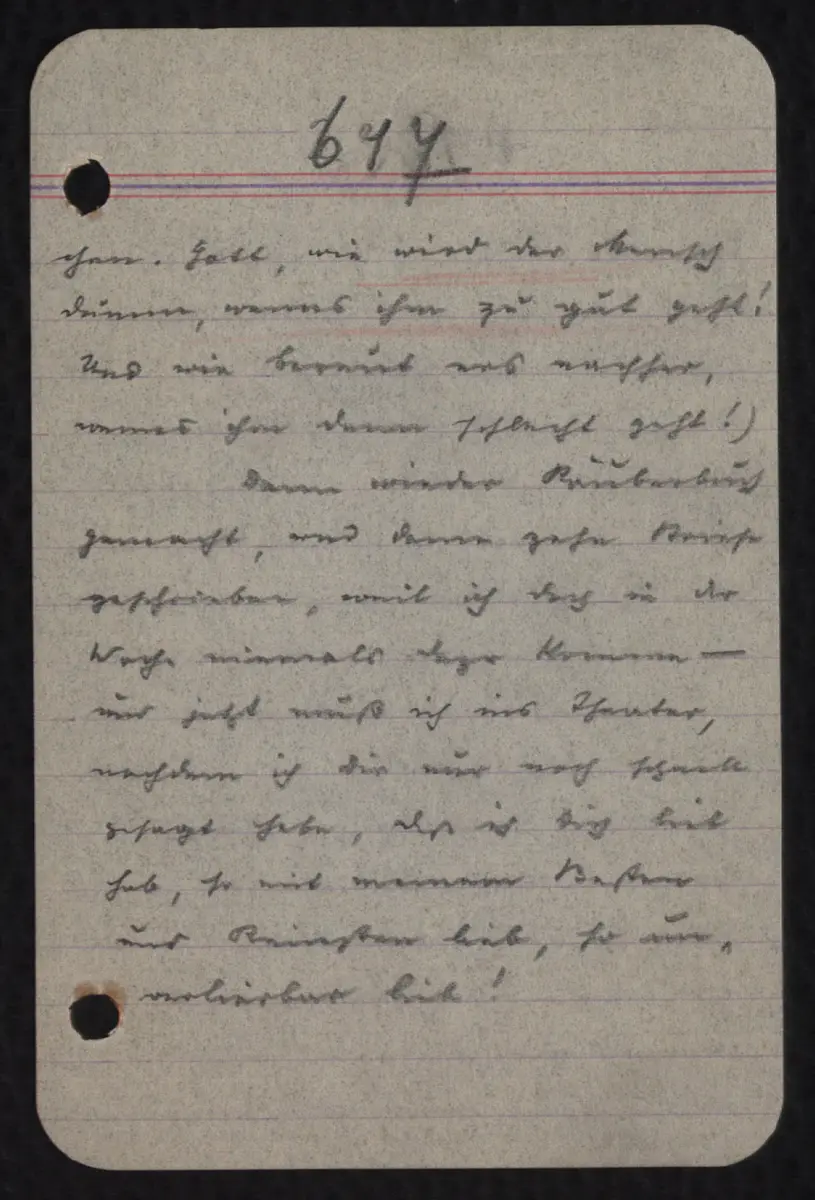 647
chen. Gott, wie wird der Mensch
dumm, wenns ihm zu gut geht!
Und wie bereut ers nachher,
wenns ihm dann schlecht geht!)
Dann wieder Räuberbuch
gemacht, und dann zehn Briefe
geschrieben, weil ich doch in der
Woche niemals dazu komme —
und jetzt muß ich ins Theater,
nachdem ich Dir nur noch schnell
gesagt habe, daß ich Dich lieb
hab, so mit meinem Besten
und Reinsten lieb, so un-
verlierbar lieb!